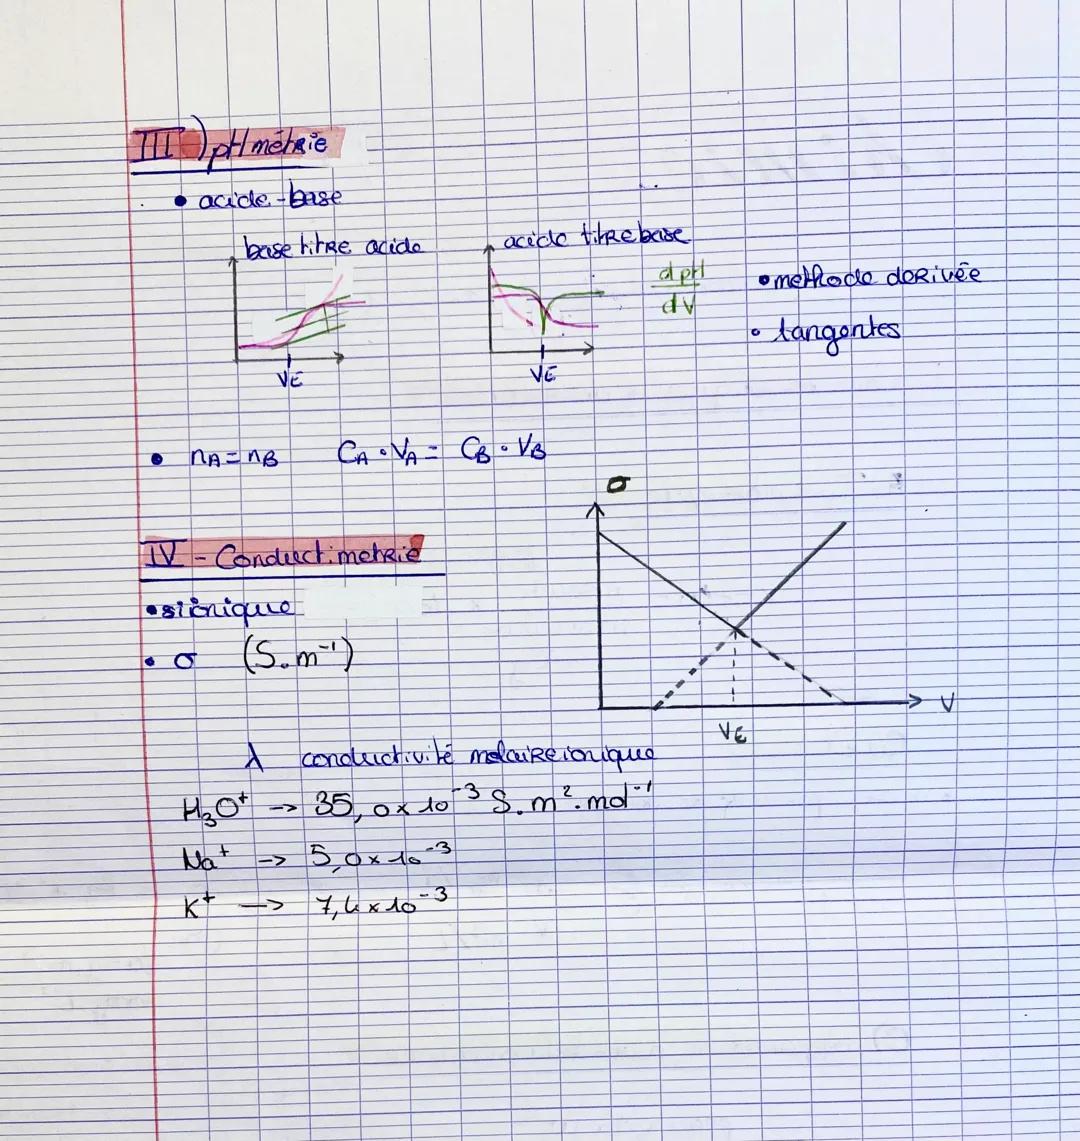 III ) pH métrie
• acide-base
base titre acide
acide titre base
dpH
dV
• methode derivée
• tangentes
VE
VE
• nA = nB    CA • VA = CB • VB
σ
IV - Conductimetrie
• σ (S.m⁻¹)
V
VE
λ conductivité molaire ionique
H₃O⁺ -> 35,0 x 10⁻³ S.m².mol⁻¹
Na⁺ -> 5,0 x 10⁻³
K⁺ -> 7,4 x 10⁻³